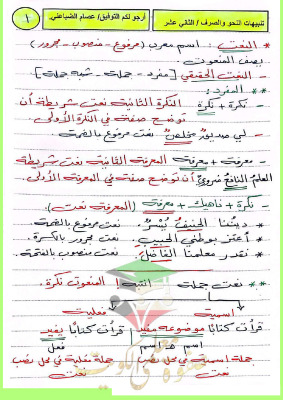 تنبيهات النحو والصرف / الثاني عشر
أرجو لكم التوفيق/ عصام الضباعلي
١
* النعت: اسم معرب (مرفوع - منصوب - مجرور)
يصف المنعوت
- النعت الحقيقي [مفرد - جملة - شبه جملة]
* المفرد:
- نكرة + نكرة النكرة الثانية نعت شريطة أن
توضح صفة في النكرة الأولى
- لي صديقٌ مخلصٌ. نعت مرفوع بالضمة
- معرفة + معرفة المعرفة الثانية نعت شريطة
العلمُ النافعُ ضروريٌّ أن توضح صفة في المعرفة الأولى.
- نكرة + ناهيك + معرفة (المعرفة نعت)
- ديننا الحنيفُ يُسْرٌ. نعت مرفوع بالضمة
- أعتز بوطني الحبيبِ. نعت مجرور بالكسرة.
- نقدر معلمنا الفاضلَ. نعت منصوب بالفتحة
** نعت جملة انتبه! المنعوت نكرة.
اسمية
فعلية
قرأت كتابًا موضوعه مفيد
قرأت كتابًا يفيد
اسم هـ اسم
فعل
جملة اسمية في محل نصب
نعت
جملة فعلية في محل نصب
نعت